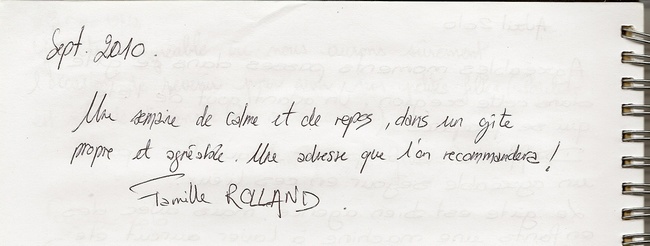 Sept. 2010.
Une semaine de calme et de repos, dans un gîte
propre et agréable. Une adresse que l'on recommandera !
Famille ROLLAND